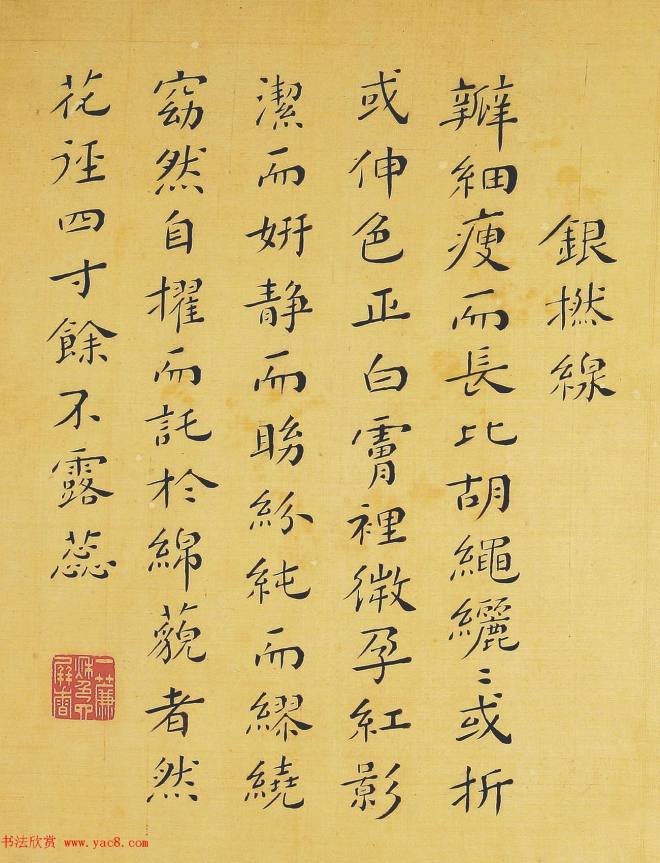 銀撚線
瓣細瘦而長比胡繩纚〻或折
或伸色正白霄裡微孕紅影
潔而妍靜而眆紛純而繆繞
窈然自擢而託於綿藐者然
花徑四寸餘不露蕊
书法欣赏 www.yac8.com